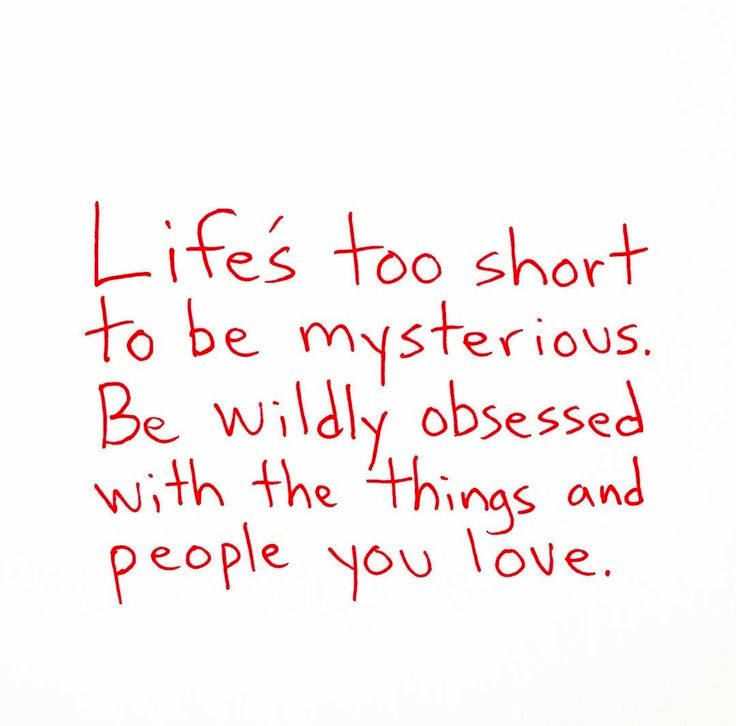 Life's too short
to be mysterious.
Be wildly obsessed
with the things and
people you love.